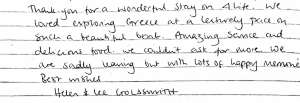 Thank you for a wonderful stay on
loved exploring Greece at a leisurely pace on
such a beautiful boat. Amazing Service and
delicious food. we couldn't ask for more. We
are sadly leaving but with lots of happy memories
Best wishes
Helen & Lee GOLDSMITH